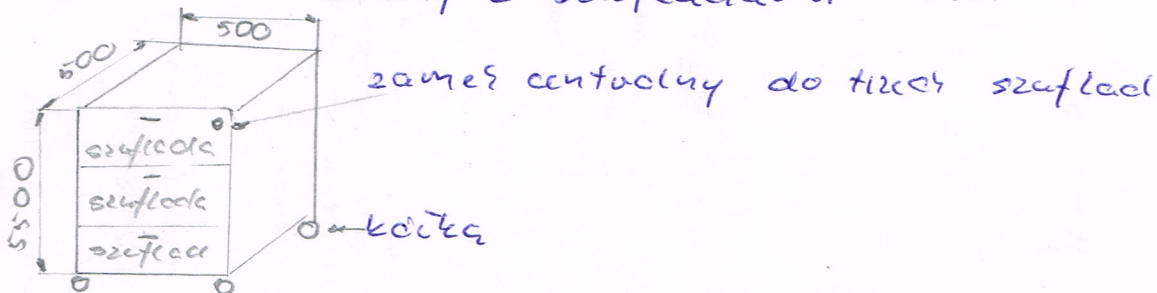 z szufladami
500
500
zamek centralny do trzech szuflad
szuflada
szuflada
szuflad
5500
kółka